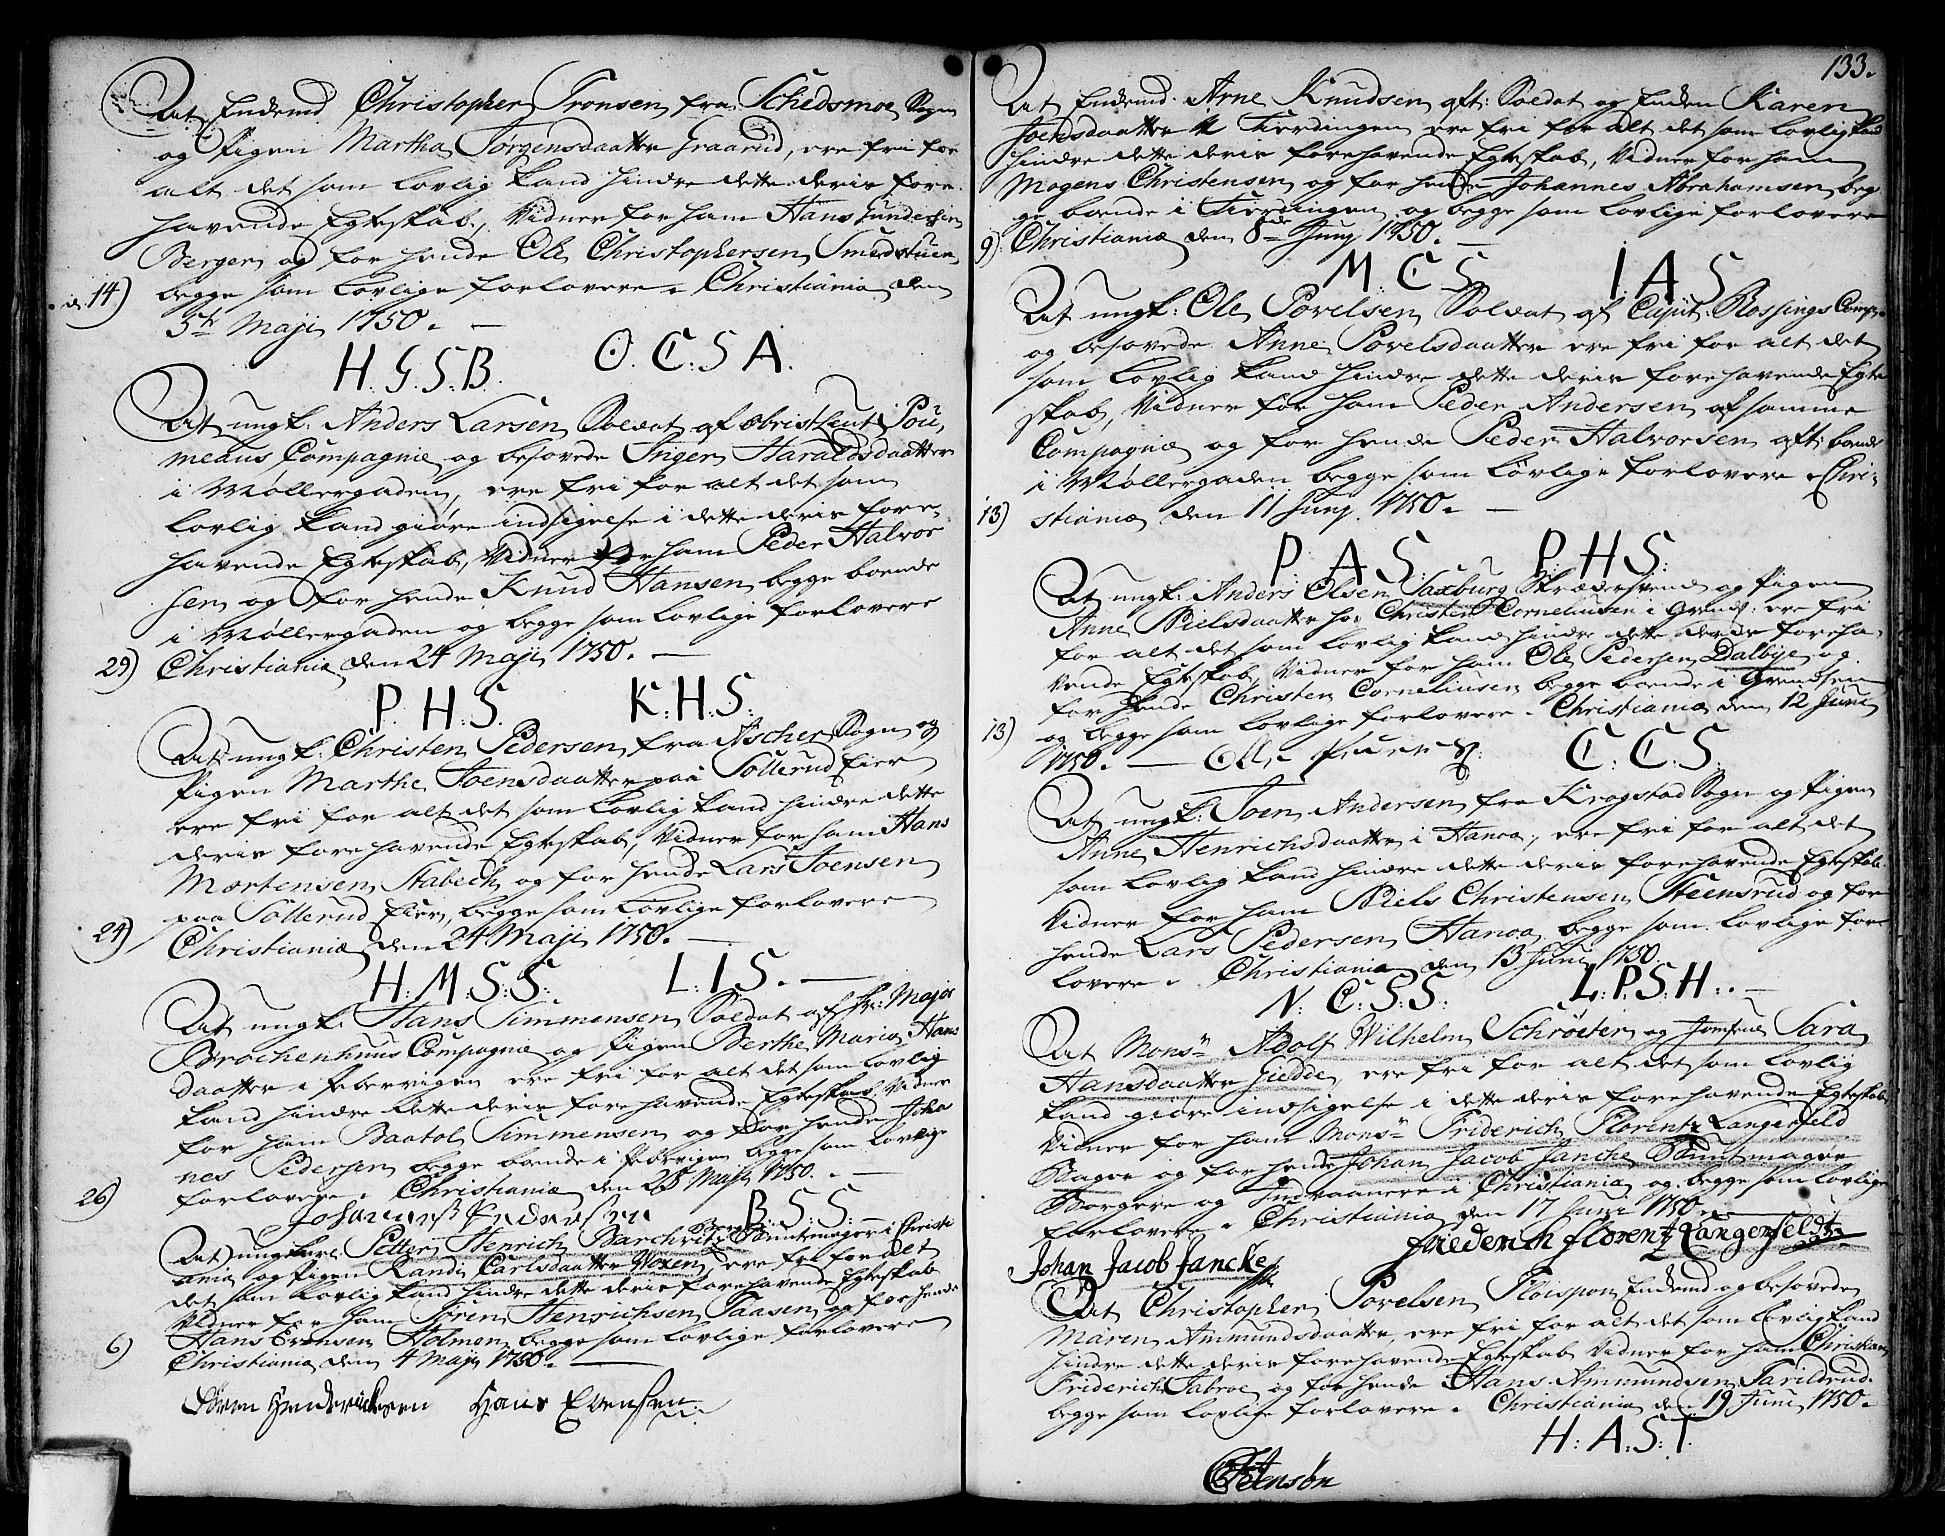 At Enkemd Christopher Tronsen fra Schedsmoe Sogn
og Pigen Martha Jørgensdaatter Graarud, ere fri for
alt det som lovlig kand hindre dette deris fore-
havende Egteskab, Vidner for ham Hans Gundersen
Berger og for hende Ole Christophersen Smedstuen
14) begge som lovlige forlovere. Christiania den
5te Maji 1750.
H. G. S. B. O. C. S A.
At ungk: Anders Larsen Soldat af obristLeut: Pou,
meaus Compagnie og besovede Inger Haraldsdaatter
i Møllergaden, ere fri for alt det som
lovlig kand giøre indsigelse i dette deris fore-
havende Egteskab, Vidner for ham Peder Halvor
sen og for hende Knud Hansen begge boende
i Møllergaden og begge som lovlige forlovere
29) Christiania den 24 Maji 1750.
P. H. S. K: H: S:
At ungk: Christen Pedersen fra Ascher Sogn og
Pigen Marthe Joensdaatter paa Sollerud Eier
ere fri for alt det som lovlig kand hindre dette
deris forehavende Egteskab, Vidner for ham Hans
Mortensen Stabech og for hende Lars Joensen
paa Sollerud Eier, begge som lovlige forlovere
24) Christiania den 24 Maji 1750.
H: M: S: S: L: I S.
At ungk: Hans Simmensen Soldat af hr: Major
Brochenhuus Compagnie og Pigen Berthe Maria Hans
daatter i Pebervigen ere fri for alt det som lovlig
kand hindre dette deris forehavende Egteskab Vidner
for ham Baatol Simmensen og for hende Joha
nes Pedersen begge boende i Pebervigen begge som lovlige
26) forlovere. Christiania den 25 Maji 1750.
B: S: S:
At ungkarl: Petter Henrich Barchvitz Buntmager i Christi
ania og Pigen Randi Carlsdaatter Woxen, ere fri for alt
det som lovlig kand hindre dette deris forehavende Egteskab
Vidner for ham Søren Henrichsen Taasen og for hende
Hans Evensen Holmen begge som lovlige forlovere
6) Christiania den 4 Maji 1750.
Sören Henderichsen Hans Evensen
133.
At Enkemd. Arne Knudsen aft: Soldat og Enken Karen
Joensdaatter i Fierdingen ere fri for alt det som lovlig kand
hindre dette deris forehavende Egteskab, Vidner for ham
Mogens Christensen og for hende Johannes Abrahamsen beg
ge boende i Fierdingen og begge som lovlige forlovere
9) Christiania den 8de Junj 1750.
M. C S I. A S
At ungk: Ole Povelsen Soldat af Capit: Rossings Comp:
og besovede Anne Povelsdaatter ere fri for alt det
som lovlig kand hindre dette deris forehavende Egte
skab, Vidner for ham Peder Andersen af samme
Compagnie og for hende Peder Halvorsen aft: boende
i Møllergaden begge som lovlige forlovere Chri-
13) stiania den 11 Junj 1750.
P. A S. P: H S:
At ungk: Anders Olsen Saxburg Skrædersvend og Pigen
Anne Nielsdaatter hos Christen Corneliusen i Grends: ere fri
for alt det som lovlig kand hindre dette deris foreha-
vende Egteskab, Vidner for ham Ole Pedersen Dalbye og
for hende Christen Corneliusen begge boende i Grendsen
13) og begge som lovlige forlovere. Christiania den 12 Juni
1750. C: C: S:
At ungk: Joen Andersen fra Krogstad Sogn og Pigen
Anne Henrichsdaatter i Hanoa, ere fri for alt det
som lovlig kand hindre dette deris forehavende Egteskab
Vidner for ham Niels Christensen Steensrud og for
hende Lars Pedersen Hanoa begge som lovlige for-
lovere. Christiania den 13 Juni 1750.
N: C: S: S: L: P: S: H:
At Monsr Adolf Wilhelm Schrøeter og Jomfrue Sara
Hansdaatter Giedde, ere fri for alt det som lovlig
kand giøre indsigelse i dette deris forehavende Egteskab
Vidner for ham Monsr Friderich Florentz Langerfeld
Bager og for hende Johan Jacob Jancke Buntmager
Borgere og Indvaanere i Christiania og begge som lovlige
forlovere. Christiania den 17 Juni 1750.
Johan Jacob Jancke friederich florentz Langerfeldt
At Christopher Povelsen Ploispon Enkemd og besovede
Maren Ammundsdaatter, ere fri for alt det som lovlig kand
hindre dette deris forehavende Egteskab Vidner for ham Christian
Friderich Fabroe og for hende Hans Ammundsen Tarildrud
begge som lovlige forlovere. Christiania den 19 Juni 1750.
H: A. S: T.